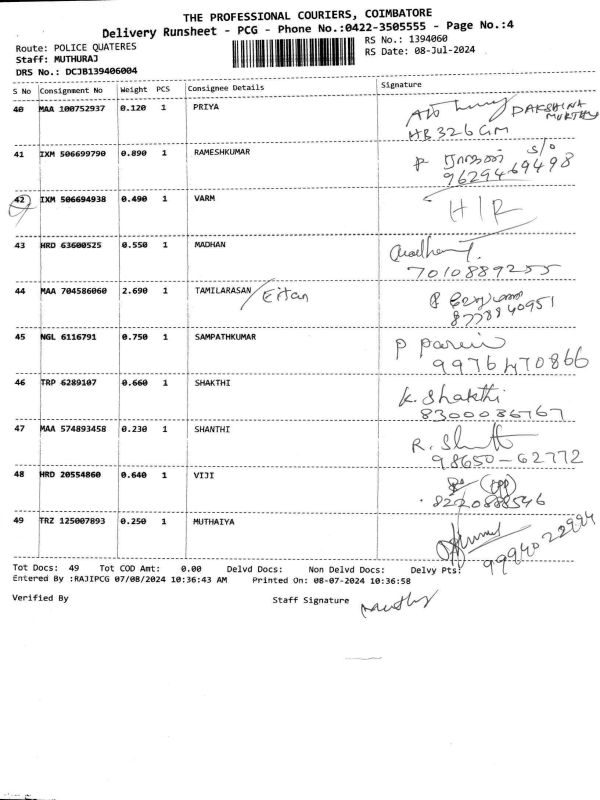 THE PROFESSIONAL COURIERS, COIMBATORE
Delivery Runsheet - PCG - Phone No.:0422-3505555 - Page No.:4
Route: POLICE QUATERES
RS No.: 1394060
Staff: MUTHURAJ
RS Date: 08-Jul-2024
DRS No.: DCJB139406004
S No Consignment No Weight PCS Consignee Details Signature
40 MAA 100752937 0.120 1 PRIYA
DAKSHINA
MURTHY
HB326 GM
41 IXM 506699790 0.890 1 RAMESHKUMAR
S/o
9629469498
42 IXM 506694938 0.490 1 VARM
H/R
43 HRD 63600525 0.550 1 MADHAN
7010889255
44 MAA 704586060 2.690 1 TAMILARASAN
8778840951
45 NGL 6116791 0.750 1 SAMPATHKUMAR
9976470866
46 TRP 6289107 0.660 1 SHAKTHI K. Shakthi
8300086767
47 MAA 574893458 0.230 1 SHANTHI
98650-62772
48 HRD 20554860 0.640 1 VIJI
8220888546
49 TRZ 125007893 0.250 1 MUTHAIYA
9994022994
Tot Docs: 49 Tot COD Amt: 0.00 Delvd Docs: Non Delvd Docs: Delvy Pts:
Entered By :RAJIPCG 07/08/2024 10:36:43 AM Printed On: 08-07-2024 10:36:58
Verified By Staff Signature